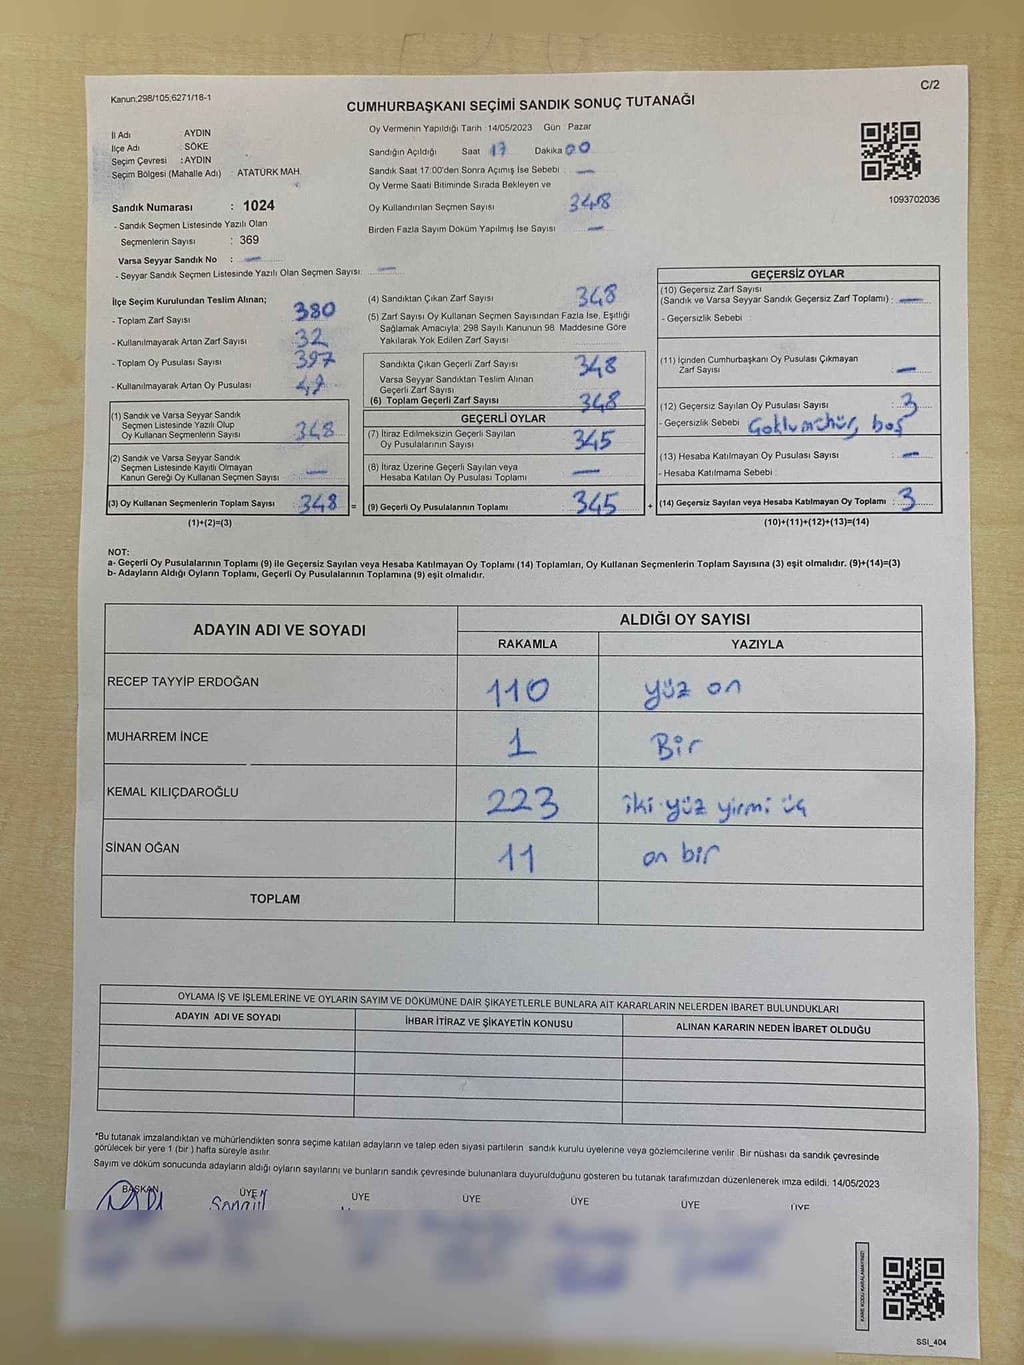 Kanun:298/105;6271/18-1
C/2
CUMHURBAŞKANI SEÇİMİ SANDIK SONUÇ TUTANAĞI
İl Adı AYDIN
İlçe Adı SÖKE
Seçim Çevresi : AYDIN
Seçim Bölgesi (Mahalle Adı) : ATATÜRK MAH.
Sandık Numarası : 1024
- Sandık Seçmen Listesinde Yazılı Olan
Seçmenlerin Sayısı : 369
Varsa Seyyar Sandık No : —
- Seyyar Sandık Seçmen Listesinde Yazılı Olan Seçmen Sayısı: —
Oy Vermenin Yapıldığı Tarih :14/05/2023 Gün Pazar
Sandığın Açıldığı Saat 17 Dakika 00
Sandık Saat 17:00'den Sonra Açımış İse Sebebi : —
Oy Verme Saati Bitiminde Sırada Bekleyen ve
Oy Kullandırılan Seçmen Sayısı 348
Birden Fazla Sayım Döküm Yapılmış İse Sayısı —
1093702036
İlçe Seçim Kurulundan Teslim Alınan;
- Toplam Zarf Sayısı 380
- Kullanılmayarak Artan Zarf Sayısı 32
- Toplam Oy Pusulası Sayısı 397
- Kullanılmayarak Artan Oy Pusulası
(1) Sandık ve Varsa Seyyar Sandık
Seçmen Listesinde Yazılı Olup
Oy Kullanan Seçmenlerin Sayısı 348
(2) Sandık ve Varsa Seyyar Sandık
Seçmen Listesinde Kayıtlı Olmayan
Kanun Gereği Oy Kullanan Seçmen Sayısı —
(3) Oy Kullanan Seçmenlerin Toplam Sayısı 348 =
(1)+(2)=(3)
(4) Sandıktan Çıkan Zarf Sayısı 348
(5) Zarf Sayısı Oy Kullanan Seçmen Sayısından Fazla İse, Eşitliği
Sağlamak Amacıyla; 298 Sayılı Kanunun 98. Maddesine Göre
Yakılarak Yok Edilen Zarf Sayısı
Sandıkta Çıkan Geçerli Zarf Sayısı 348
Varsa Seyyar Sandıktan Teslim Alınan
Geçerli Zarf Sayısı
(6) Toplam Geçerli Zarf Sayısı 348
GEÇERLİ OYLAR
(7) İtiraz Edilmeksizin Geçerli Sayılan
Oy Pusulalarının Sayısı 345
(8) İtiraz Üzerine Geçerli Sayılan veya
Hesaba Katılan Oy Pusulası Toplamı —
(9) Geçerli Oy Pusulalarının Toplamı 345 +
GEÇERSİZ OYLAR
(10) Geçersiz Zarf Sayısı
(Sandık ve Varsa Seyyar Sandık Geçersiz Zarf Toplamı) : —
- Geçersizlik Sebebi :
(11) İçinden Cumhurbaşkanı Oy Pusulası Çıkmayan
Zarf Sayısı —
(12) Geçersiz Sayılan Oy Pusulası Sayısı 3
- Geçersizlik Sebebi boş
(13) Hesaba Katılmayan Oy Pusulası Sayısı —
- Hesaba Katılmama Sebebi :
(14) Geçersiz Sayılan veya Hesaba Katılmayan Oy Toplamı : 3
(10)+(11)+(12)+(13)=(14)
NOT:
a- Geçerli Oy Pusulalarının Toplamı (9) ile Geçersiz Sayılan veya Hesaba Katılmayan Oy Toplamı (14) Toplamları, Oy Kullanan Seçmenlerin Toplam Sayısına (3) eşit olmalıdır. (9)+(14)=(3)
b- Adayların Aldığı Oyların Toplamı, Geçerli Oy Pusulalarının Toplamına (9) eşit olmalıdır.
ADAYIN ADI VE SOYADI ALDIĞI OY SAYISI
RAKAMLA YAZIYLA
RECEP TAYYİP ERDOĞAN 110 yüz on
MUHARREM İNCE 1 Bir
KEMAL KILIÇDAROĞLU 223 iki yüz yirmi üç
SİNAN OĞAN 11 on bir
TOPLAM
OYLAMA İŞ VE İŞLEMLERİNE VE OYLARIN SAYIM VE DÖKÜMÜNE DAİR ŞİKAYETLERLE BUNLARA AİT KARARLARIN NELERDEN İBARET BULUNDUKLARI
ADAYIN ADI VE SOYADI İHBAR İTİRAZ VE ŞİKAYETİN KONUSU ALINAN KARARIN NEDEN İBARET OLDUĞU
*Bu tutanak imzalandıktan ve mühürlendikten sonra seçime katılan adayların ve talep eden siyasi partilerin sandık kurulu üyelerine veya gözlemcilerine verilir. Bir nüshası da sandık çevresinde
görülecek bir yere 1 (bir ) hafta süreyle asılır.
Sayım ve döküm sonucunda adayların aldığı oyların sayılarını ve bunların sandık çevresinde bulunanlara duyurulduğunu gösteren bu tutanak tarafımızdan düzenlenerek imza edildi. 14/05/2023
BAŞKAN ÜYE ÜYE ÜYE ÜYE ÜYE ÜYE
KARE KODU KARALAMAYINIZ!
SSI_404